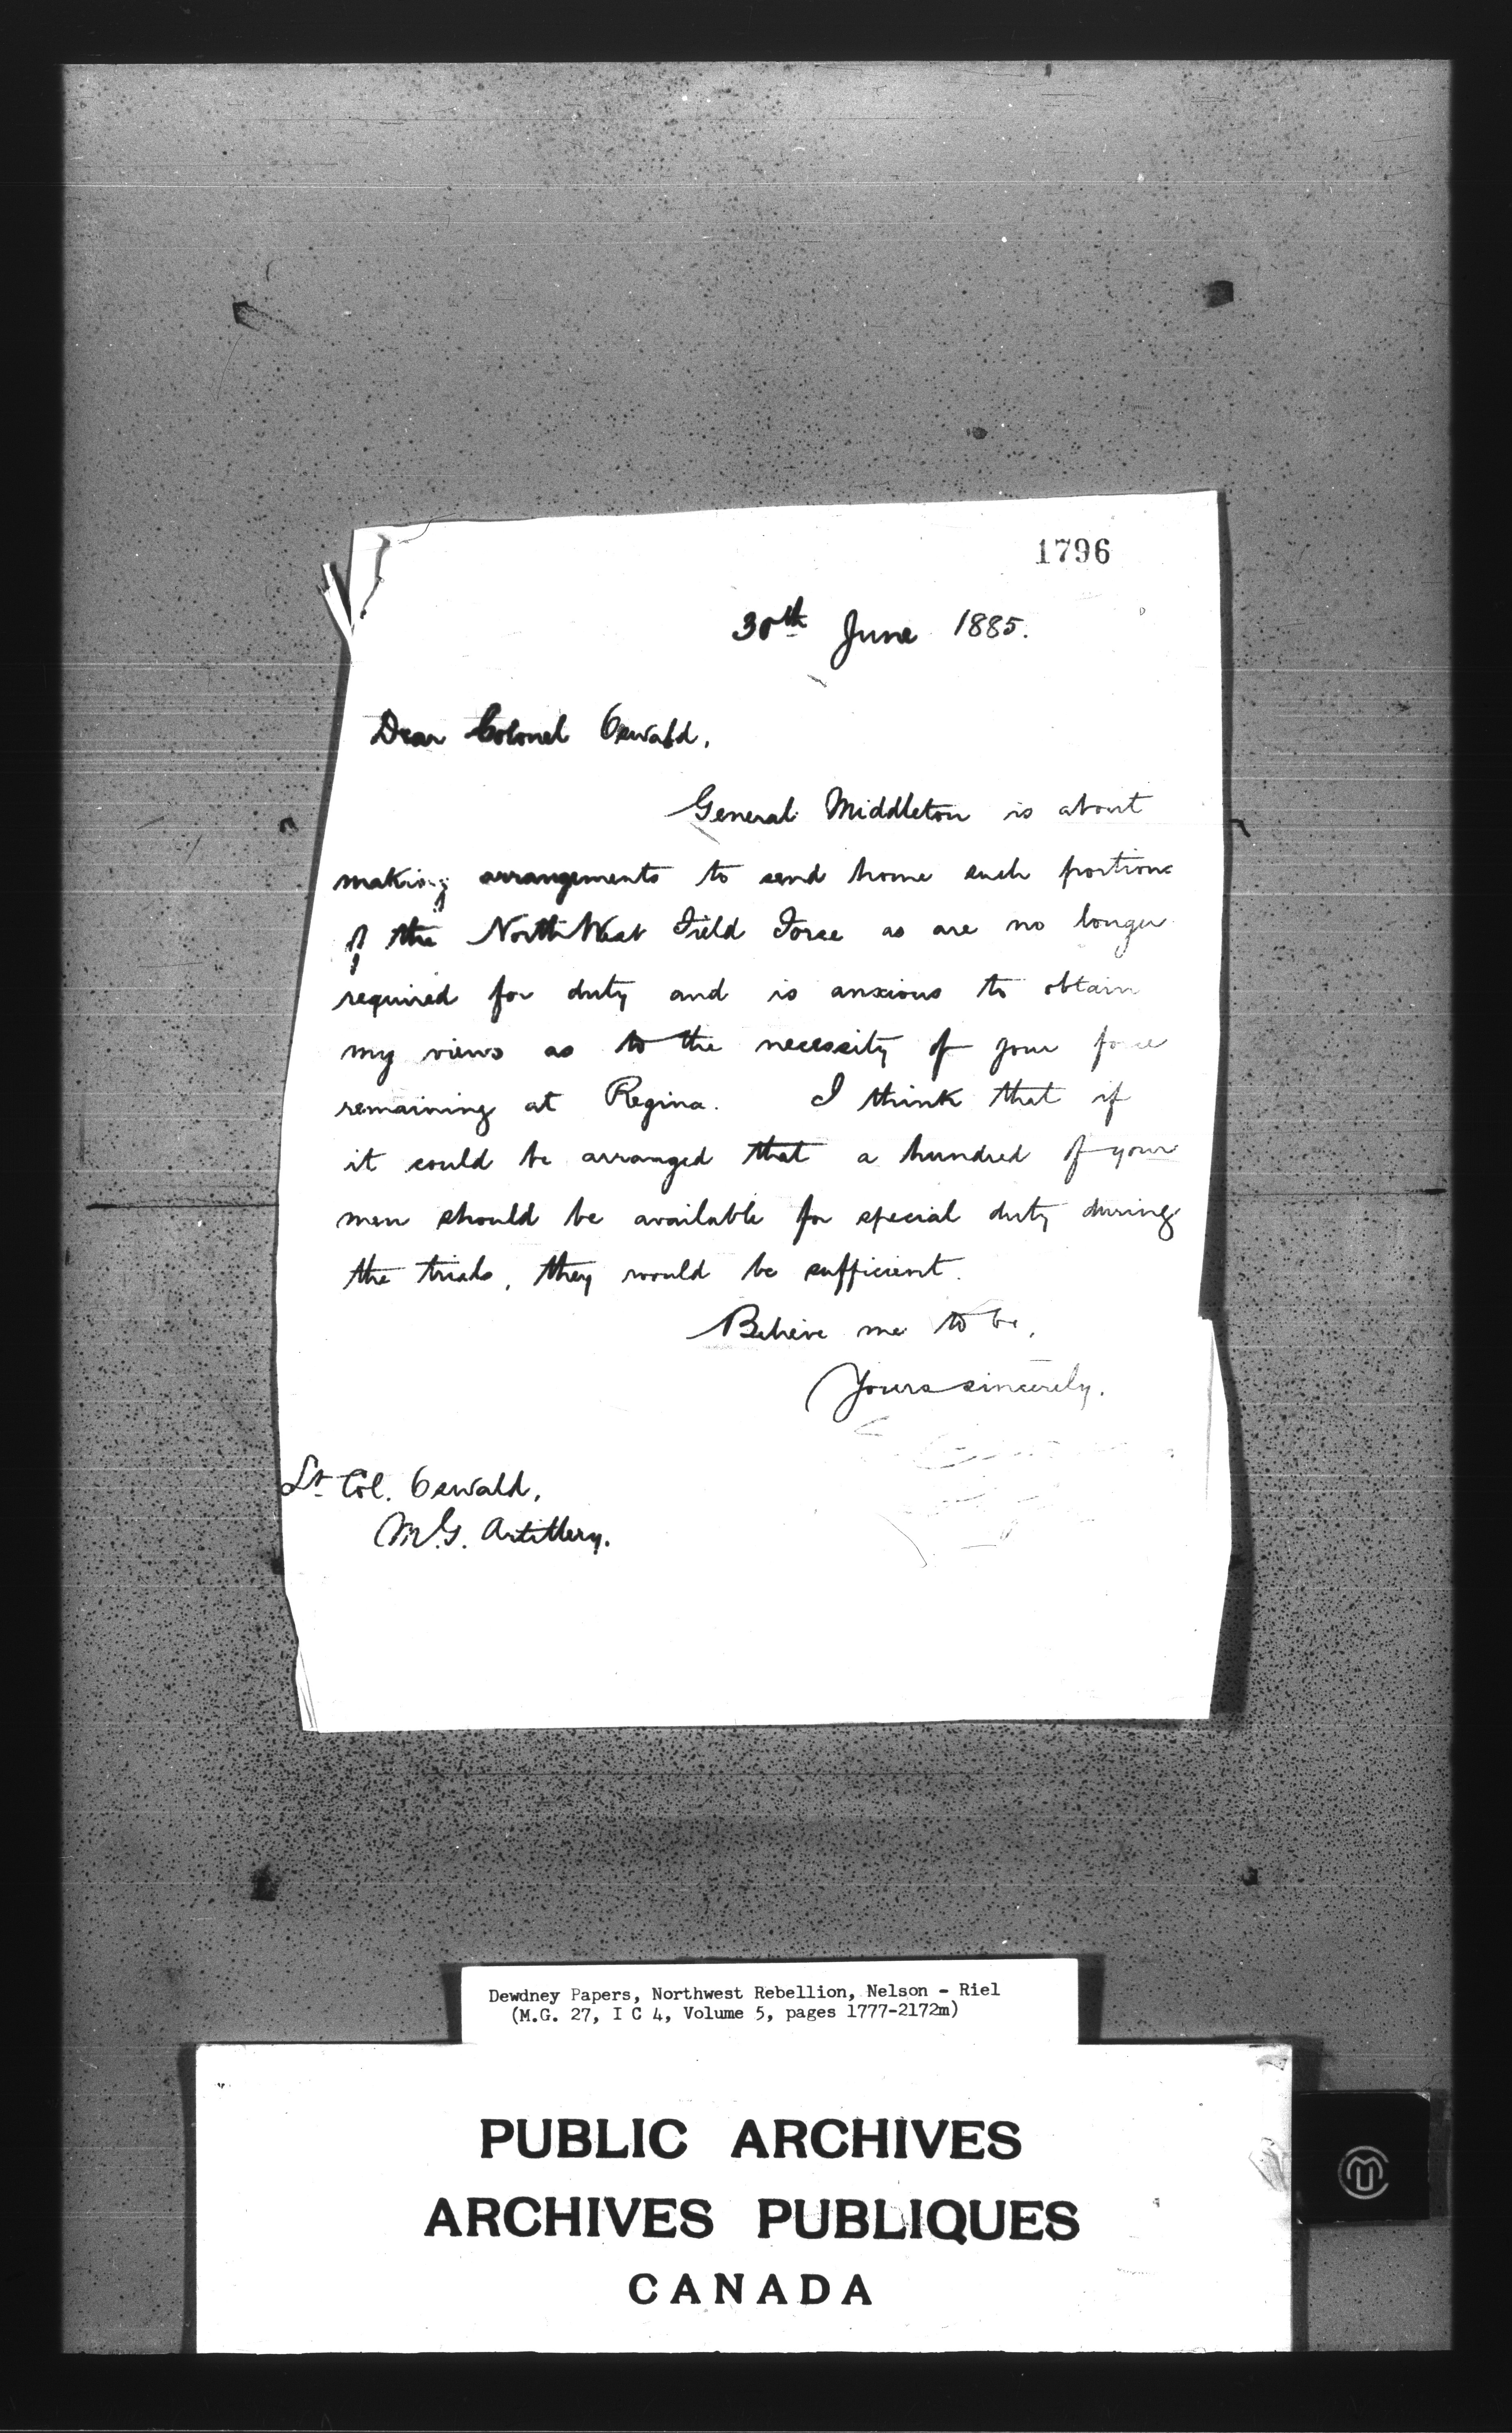 1796
30th June 1885.
Dear Colonel Oswald,
General Middleton is about
making arrangements to send home such portions
of the North West Field Force as are no longer
required for duty and is anxious to obtain
my views as to the necessity of your force
remaining at Regina. I think that if
it could be arranged that a hundred of your
men should be available for special duty during
the trials, they would be sufficient.
Believe me to be,
Yours sincerely.
Lt. Col. Oswald,
M.G. Artillery.
Dewdney Papers, Northwest Rebellion, Nelson - Riel
(M.G. 27, I C 4, Volume 5, pages 1777-2172m)
PUBLIC ARCHIVES
ARCHIVES PUBLIQUES
CANADA